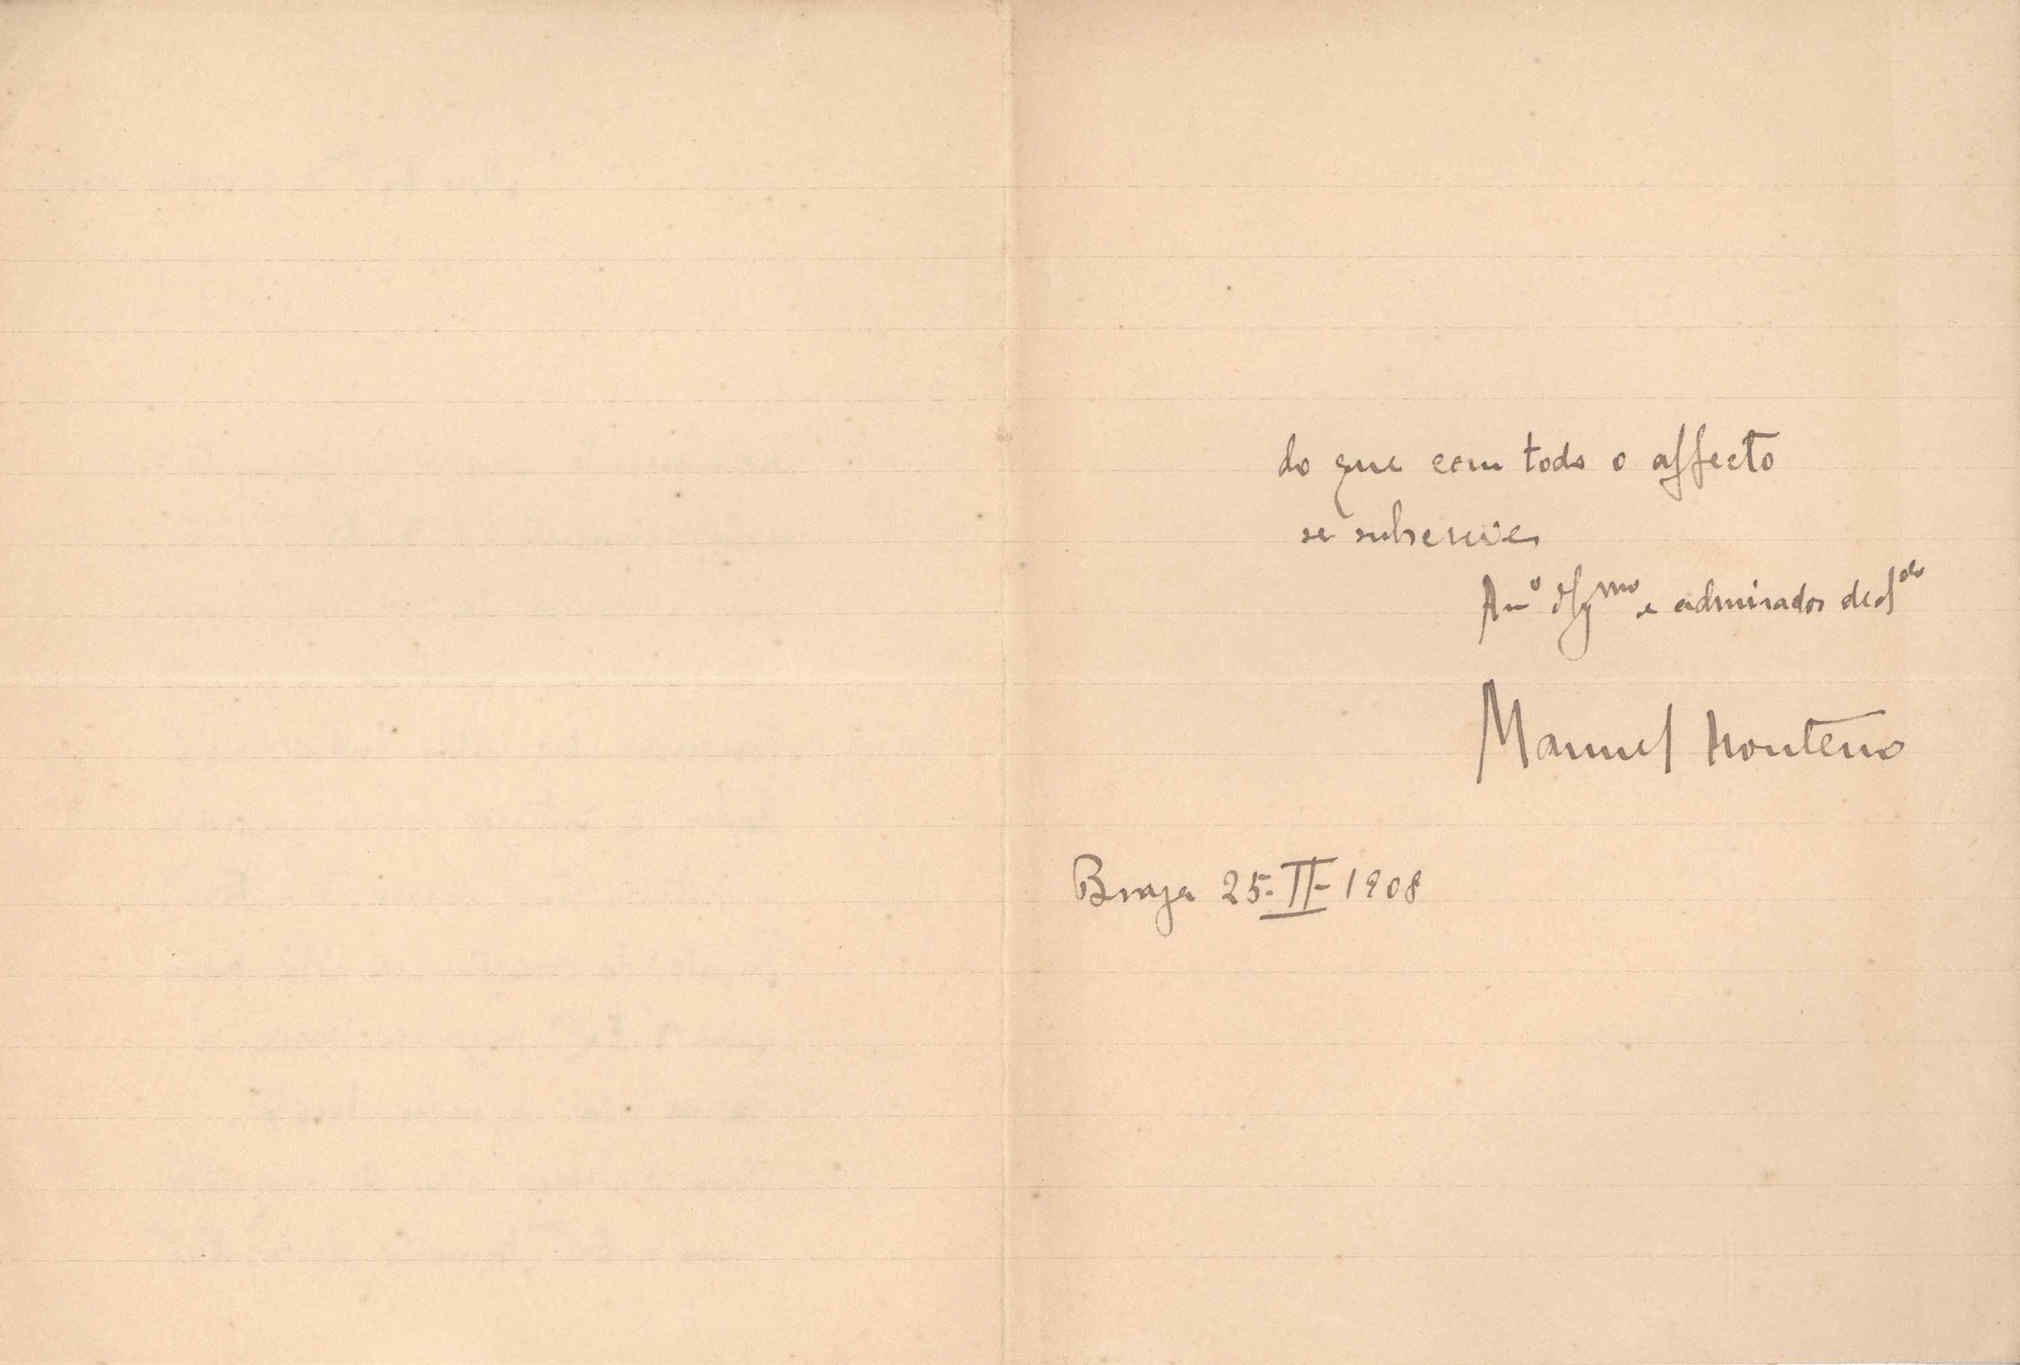 do que com todo o affecto
se subscreve
Am.º Obg.mo e admirador ded.do
Manuel Monteiro
Braga 25-II-1908